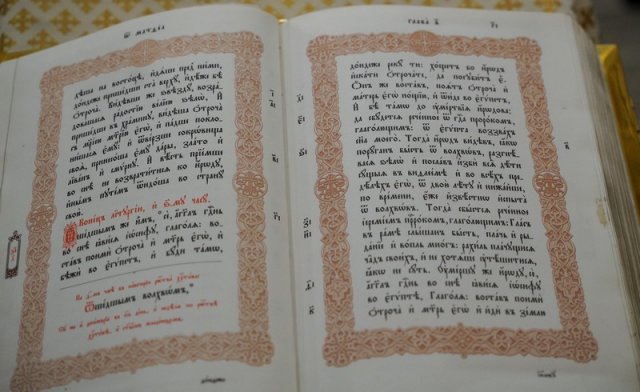 Ѿ матѳеа
дѣша на востоцѣ, идѧше пред̾ ними,
дондеже пришедши ста верху, идѣже бѣ
отроча. Видѣвше же звѣзду, возра-
довашасѧ радостїю велїею ѕѣлѡ. И
пришедше въ храмину, видѣша отроча
съ марїею мт҃рїю егѡ, и падше покло-
нишасѧ ему: и ѿверзше сокровища
своѧ, принесоша ему дары, злато и
ливанъ и смѵрну. И вѣсть прїемше
во снѣ не возвратитисѧ ко ироду,
инымъ путемъ ѿидоша во страну
свою.
Конецъ литургїи, и
Ѿшедшымъ же имъ, се, агг҃лъ гдⷭ҇нь
во снѣ ꙗвисѧ іѡсифу, глаголѧ: во-
ставъ поими отроча и мт҃рь егѡ, и
бѣжи во егѵпетъ, и буди тамѡ,
Ѿшедшымъ волхвѡмъ,
дондеже
глава в҃
дондеже реку ти: хощетъ бо иродъ
искати отрочате, да погубитъ е.
Онъ же воставъ, поѧтъ отроча и
матерь егѡ нощїю, и ѿиде во егѵпетъ,
И бѣ тамѡ до умертвїѧ иродова:
да сбудетсѧ реченное ѿ гдⷭ҇а пророкомъ,
глаголющимъ: ѿ егѵпта воззвахъ
сн҃а моего. Тогда иродъ видѣвъ, ꙗкѡ
поруганъ бысть ѿ волхвѡвъ, разгнѣ-
васѧ ѕѣлѡ и пославъ изби всѧ дѣти
сущыѧ въ виѳлеемѣ и во всѣхъ пре-
дѣлѣхъ егѡ, ѿ двою лѣту и нижайши,
по времени, еже извѣстнѡ испыта
ѿ волхвѡвъ. Тогда сбыстсѧ реченное
іеремїемъ пророкомъ, глаголющимъ: Гласъ
въ рамѣ слышанъ бысть, плачь и ры-
данїе и вопль многъ: рахиль плачущисѧ
чадъ своихъ, и не хотѧше утѣшитисѧ,
ꙗкѡ не суть. Умершу же ироду, се,
агг҃лъ гдⷭ҇нь во снѣ ꙗвисѧ іѡсифу
во егѵптѣ, Глаголѧ: воставъ поими
отроча и мт҃рь егѡ и иди въ землю